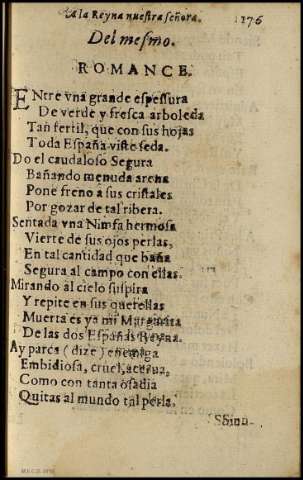 A la Reyna nuestra señora. 176
Del mesmo.
ROMANCE.
ENtre vna grande espessura
De verde y fresca arboleda
Tan fertil, que con sus hojas
Toda España viste seda.
Do el caudaloso Segura
Bañando menuda arena
Pone freno a sus cristales
Por gozar de tal ribera.
Sentada vna Nimfa hermosa
Vierte de sus ojos perlas,
En tal cantidad que baña
Segura al campo con ellas.
Mirando al cielo suspira
Y repite en sus querellas
Muerta es ya mi Margarita
De las dos Españas Reyna.
Ay parca (dize) enemiga
Embidiosa, cruel, acerua,
Como con tanta osadia
Quitas al mundo tal perla.